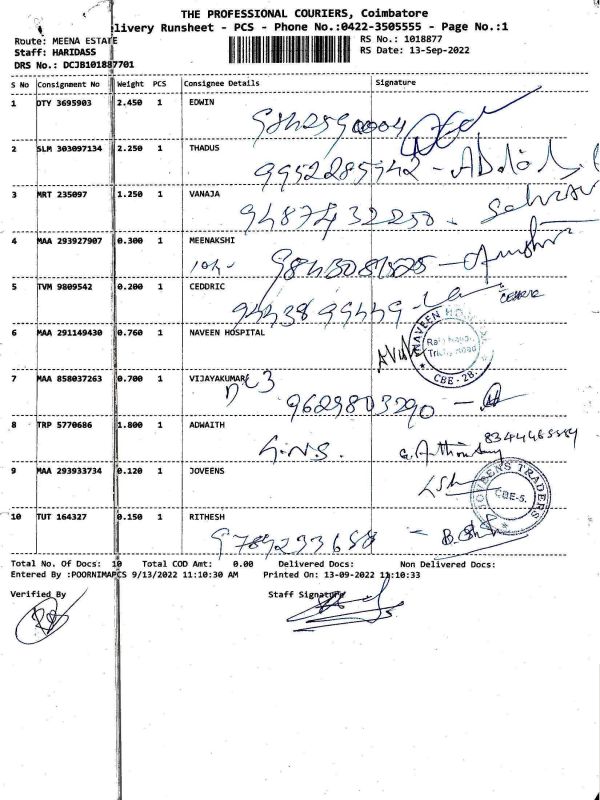 THE PROFESSIONAL COURIERS, Coimbatore
livery Runsheet - PCS - Phone No.:0422-3505555 - Page No.:1
Route: MEENA ESTATE RS No.: 1018877
Staff: HARIDASS RS Date: 13-Sep-2022
DRS No.: DCJB101887701
S No Consignment No Weight PCS Consignee Details Signature
1 OTY 3695903 2.450 1 EDWIN
2 SLM 303097134 2.250 1 THADUS
9952285942 -
3 MRT 235097 1.250 1 VANAJA
4 MAA 293927907 0.300 1 MEENAKSHI
5 TVM 9809542 0.200 1 CEDDRIC
944389 9449 - CEDDRIC
6 MAA 291149430 0.760 1 NAVEEN HOSPITAL
NAVEEN
CBE - 28.
7 MAA 858037263 0.700 1 VIJAYAKUMAR
9629803290 -
8 TRP 5770686 1.800 1 ADWAITH
9 MAA 293933734 0.120 1 JOVEENS
JOVEENS TRADERS
CBE-5.
10 TUT 164327 0.150 1 RITHESH
9789293658 -
Total No. Of Docs: 10 Total COD Amt: 0.00 Delivered Docs: Non Delivered Docs:
Entered By :POORNIMAPCS 9/13/2022 11:10:30 AM Printed On: 13-09-2022 11:10:33
Verified By Staff Signature